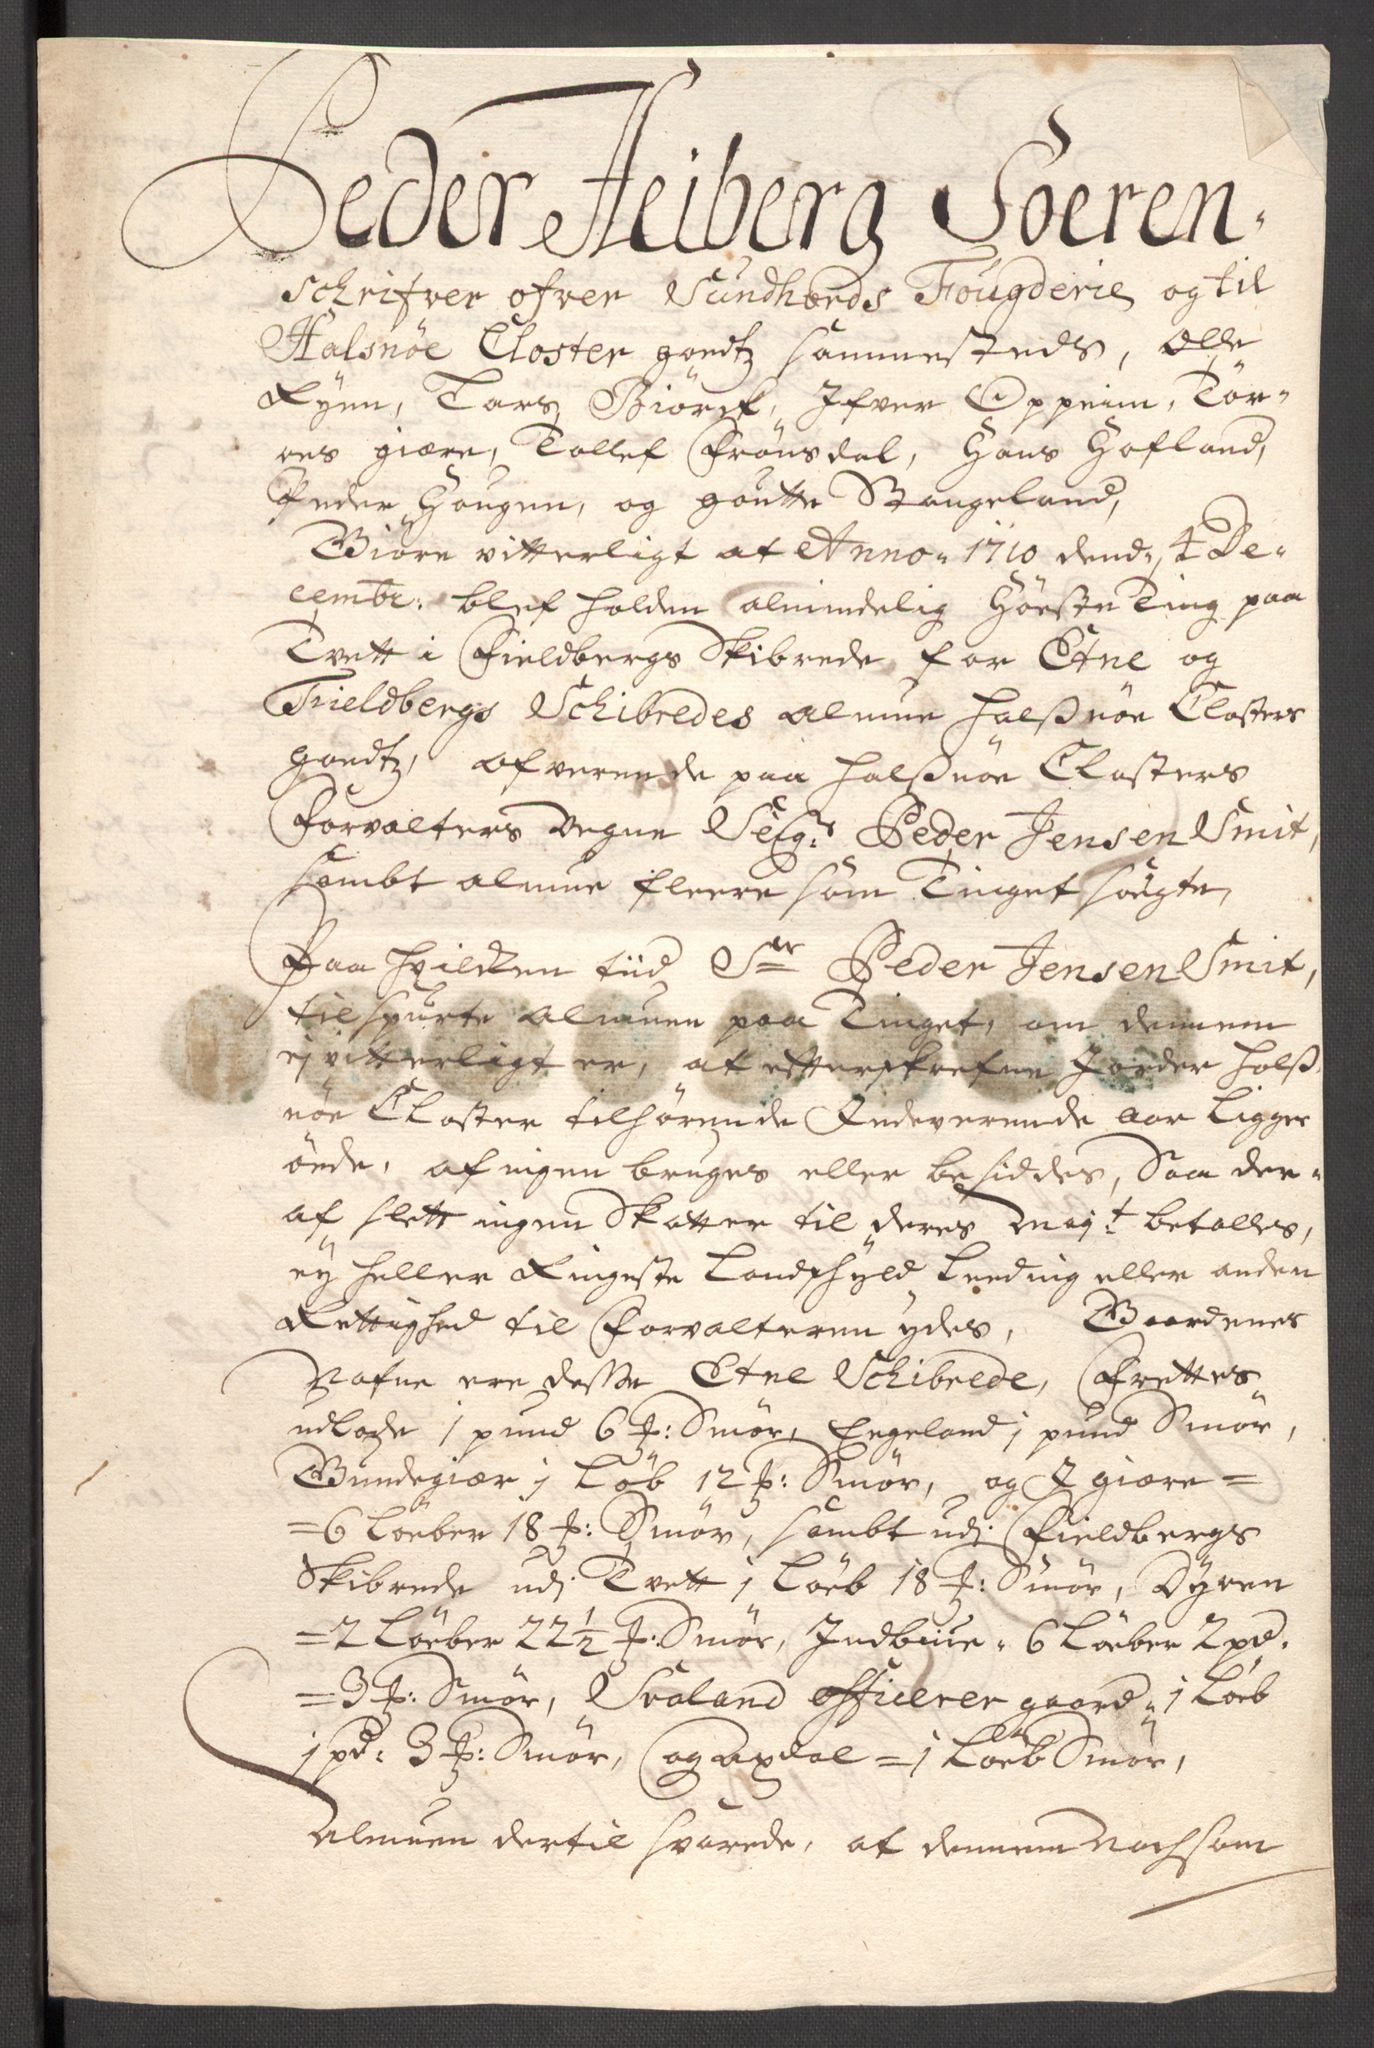 Peder Heiberg Soeren-
schrifver ofver Sundhords Fougderie, og til
Halsnöe Closter goedtz sammesteds, Olle
Ryen, Lars Biörck, Ifver Oppeim, Tör-
res giære, Tollef Frönsdal, Hans Hofland,
Peder Hougen, og goutte Stangeland,
Giöre vitterligt at Anno 1710 dend 4 De-
cembr: blef holden almindelig Höeste Ting paa
Tvett i Fieldbergs Skibrede for Etne og
Fieldbergs Schibredes almue Halsnöe Closters
goedtz, ofverende paa Halsnöe Closters
Forvalters Vegne Seigr Peder Jensen Smit,
sambt almue fleere som Tinget söegte,
Paa hvilcken tiid Sr Peder Jensen Smit,
tilspurte almuen paa Tinget, om dennem
ej vitterligt er, at effterskrefne Jorder Hals-
nöe Closter tilhörende Indeverende aar Ligger
öede, af ingen bruges eller besiddes, Saa der-
af slett ingen Skatter til deres Majt betalles,
ey heller Ringeste Landskyld Leeding eller anden
Rettighed til Forvalteren ydes, Gaardenes
Nafne ere desse Etne Schibrede, Frettes
udlode 1 pund 6 : Smör, Engeland j pund Smör,
Gundegiær j Löb 12 : Smör, og giære =
= 6 Löeber 18 : Smör, sambt udj Fieldbergs
Skibrede udj Tvett j Löeb 18 : Smör, Dyren
= 2 Löeber 22½ : Smör, Indbiue 6 Löeber 2 pd.
= 3 : Smör, Svaland officerer gaard j Löeb
j pd: 3 : Smör, og axdal = j Löeb Smör,
Almuen dertil svarede, at dennem Nochsom